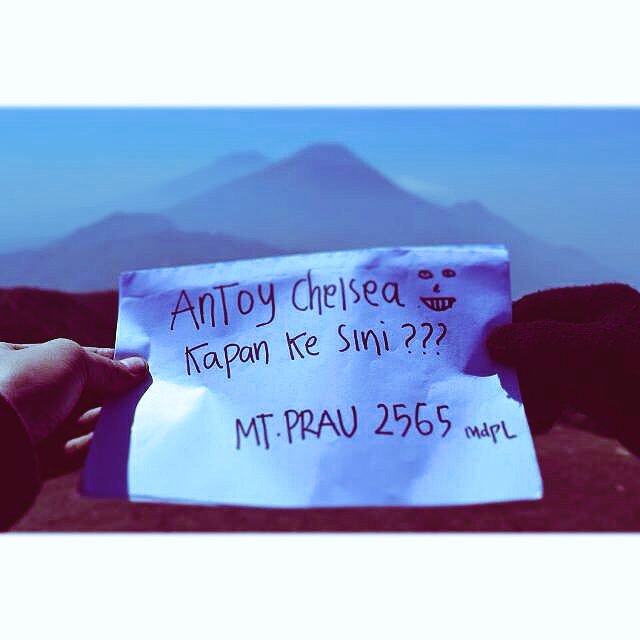 AnToy Chelsea
Kapan Ke Sini ???
MT. PRAU 2565 mdpL